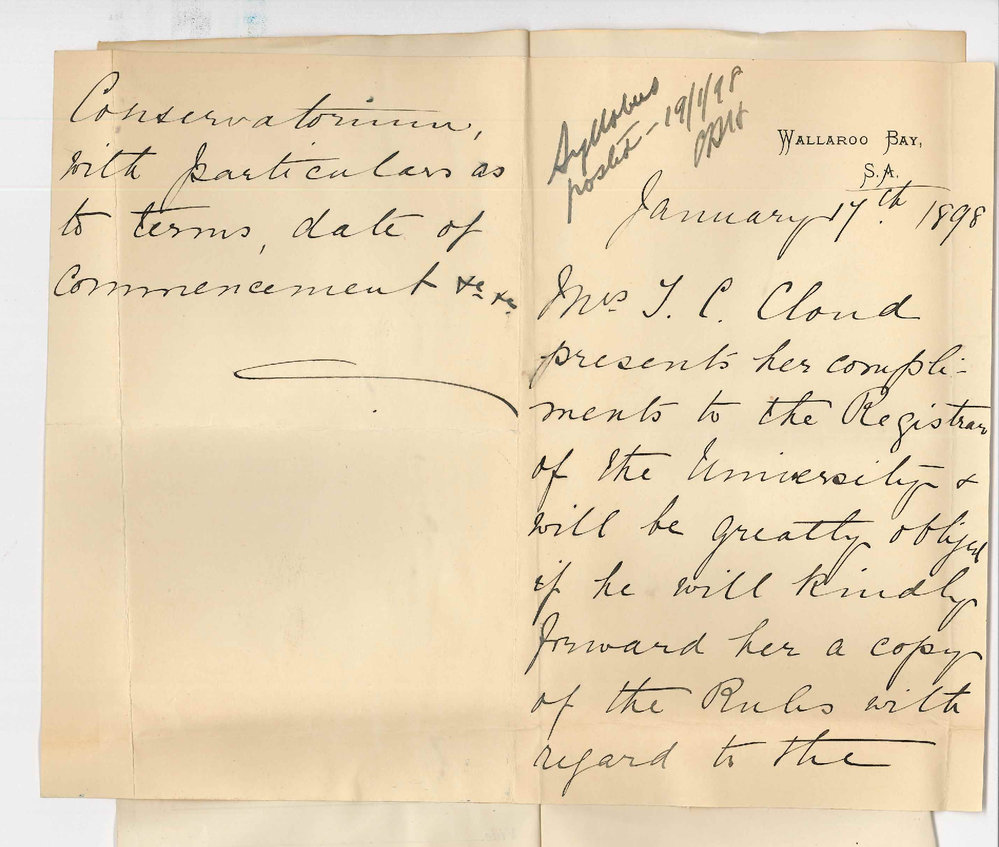 Syllabus
posted - 19/1/98
WALLAROO BAY,
S.A.
January 17th. 1898
Mrs. T. C. Cloud
presents her compli-
ments to the Registrar
of the University &
will be greatly obliged
if he will kindly
forward her a copy
of the Rules with
regard to the
Conservatorium,
with particulars as
to terms, date of
commencement &c &c.